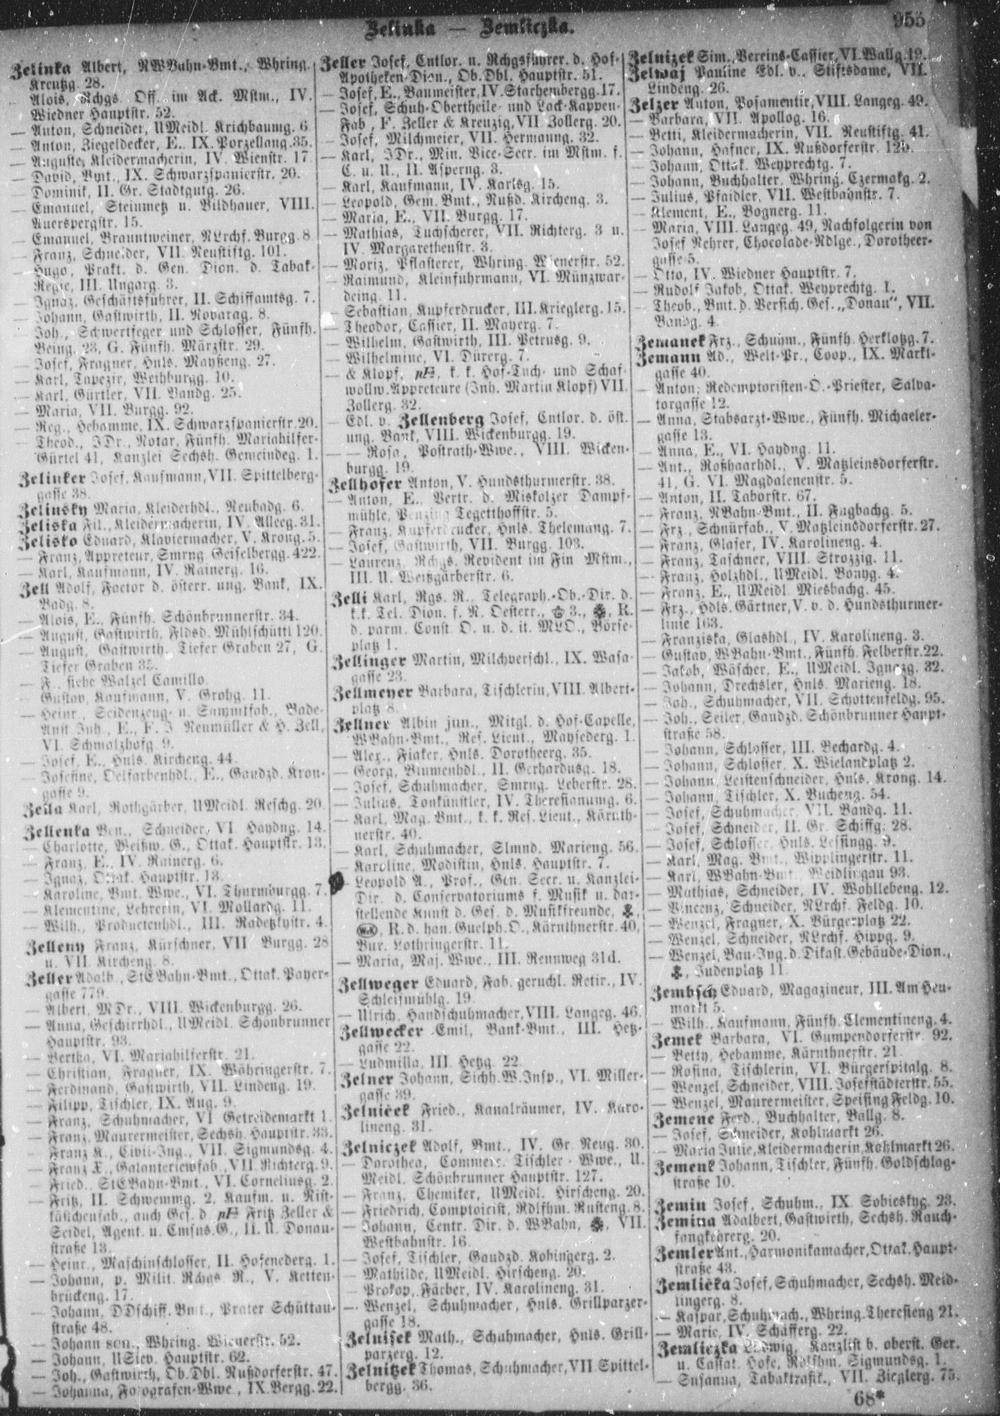 Zelinka — Zemliczka.
955
Zelinka Albert, NWBahn-Bmt., Whring.
Kreuzg. 28.
— Alois, Rchgs. Off. im Ack. Mstm., IV.
Wiedner Hauptstr. 52.
— Anton, Schneider, UMeidl. Krichbaumg. 6.
— Anton, Ziegeldecker, E., IX. Porzellang. 35.
— Auguste, Kleidermacherin, IV. Wienstr. 17.
— David, Bmt., IX. Schwarzspanierstr. 20.
— Dominik, II. Gr. Stadtgutg. 26.
— Emanuel, Steinmetz u. Bildhauer, VIII.
Auerspergstr. 15.
— Emanuel, Brauntweiner, NLrchf. Burgg. 8
— Franz, Schneider, VII. Neustiftg. 101.
— Hugo, Prakt. d. Gen. Dion. d. Tabak-
Regie, III. Ungarg. 3.
— Ignaz, Geschäftsführer, II. Schiffamtsg. 7.
— Johann, Gastwirth, II. Novarag. 8.
— Joh., Schwertfeger und Schlosser, Fünfh.
Being. 23, G. Fünfh. Märzstr. 29.
— Josef, Fragner, Hnls. Mayßeng. 27.
— Karl, Tapezir, Weihburgg. 10.
— Karl, Gürtler, VII. Bandg. 25.
— Maria, VII. Burgg. 92.
— Reg., Hebamme, IX. Schwarzspanierstr. 20.
— Theod., JDr., Notar, Fünfh. Mariahilfer-
Gürtel 41, Kanzlei Sechsh. Gemeindeg. 1.
Zelinker Josef, Kaufmann, VII. Spittelberg-
gasse 38.
Zelinsky Maria, Kleiderhdl., Neubadg. 6.
Zeliska Fil., Kleidermacherin, IV. Alleeg. 31.
Zelisko Eduard, Klaviermacher, V. Krong. 5.
— Franz, Appreteur, Smrng. Geiselbergg. 422.
— Karl, Kaufmann, IV. Rainerg. 16.
Zell Adolf, Factor d. österr. ung. Bank, IX.
Badg. 8.
— Alois, E., Fünfh. Schönbrunnerstr. 34.
— August, Gastwirth, Fldsd. Mühlschüttl 120.
— August, Gastwirth, Tiefer Graben 27, G.
Tiefer Graben 35.
— F., siehe Walzel Camillo.
— Gustav, Kaufmann, V. Grohg. 11.
— Heinr., Seidenzeug- u. Sammtfab., Bade-
Anst. Inh., E., F. J. Neumüller & H. Zell,
VI. Schmalzhofg. 9.
— Josef, E., Hnls. Kircheng. 44.
— Josefine, Oelfarbenhdl., E., Gaudzd. Kron-
gasse 9.
Zella Karl, Rothgärber, UMeidl. Reschg. 20.
Zellenka Ben., Schneider, VI. Haydng. 14.
— Charlotte, Weißw. G., Ottak. Hauptstr. 13.
— Franz, E., IV. Rainerg. 6.
— Ignaz, Ottak. Hauptstr. 13.
— Karoline, Bmt. Wwe., VI. Thurmburgg. 7.
— Klementine, Lehrerin, VI. Mollardg. 11.
— Wilh., Productenhdl., III. Radetzkystr. 4.
Zelleny Franz, Kürschner, VII Burgg. 28
u. VII. Kircheng. 8.
Zeller Adalb., StEBahn-Bmt., Ottak. Payer-
gasse 779.
— Albert, MDr., VIII. Wickenburgg. 26.
— Anna, Geschirrhdl., UMeidl. Schönbrunner
Hauptstr. 93.
— Bertha, VI. Mariahilferstr. 21.
— Christian, Fragner, IX. Währingerstr. 7.
— Ferdinand, Gastwirth, VII. Lindeng. 19.
— Filipp, Tischler, IX. Aug. 9.
— Franz, Schuhmacher, VI Getreidemarkt 1.
— Franz, Maurermeister, Sechsh. Hauptstr. 33.
— Franz K., Civil-Ing., VII. Sigmundsg. 4.
— Franz X., Galanteriewfab., VII. Richterg. 9.
— Fried., StEBahn-Bmt., VI. Corneliusg. 2.
— Fritz, II. Schwemmg. 2, Kaufm. u. Rist-
kästchenfab., auch Ges. d. Fritz Zeller &
Seidel, Agent. u. Cmsns.G., II. U. Donau-
straße 13.
— Heinr., Maschinschlosser, II. Hofenederg. 1.
— Johann, p. Milit. Rchgs. R., V. Ketten-
brückeng. 17.
— Johann, DDschiff. Bmt., Prater Schüttau-
straße 48.
— Johann sen., Whring. Wienerstr. 52.
— Johann, USiev. Hauptstr. 62.
— Joh., Gastwirth, Ob. Dbl. Nußdorferstr. 47.
— Johanna, Fotografen-Wwe., IX. Bergg. 22.
Zeller Josef, Cntlor. u. Rchgsführer. d. Hof-
Apotheken-Dion., Ob. Dbl. Hauptstr. 51.
— Josef, E., Baumeister, IV. Starhembergg. 17.
— Josef, Schuh-Obertheile- und Lack-Kappen-
Fab., F. Zeller & Kreuzig, VII. Zollerg. 20.
— Josef, Milchmeier, VII. Hermanng. 32.
— Karl, JDr., Min. Vice-Secr. im Mstm. f.
C. u. U., II. Asperng. 3.
— Karl, Kaufmann, IV. Karlsg. 15.
— Leopold, Gem. Bmt., Nußd. Kircheng. 3.
— Maria, E., VII. Burgg. 17.
— Mathias, Tuchscherer, VII. Richterg. 3 u.
IV. Margarethenstr. 3.
— Moriz, Pflasterer, Whring. Wienerstr. 52.
— Raimund, Kleinfuhrmann, VI. Münzwar-
deing. 11.
— Sebastian, Kupferdrucker, III. Krieglerg. 15.
— Theodor, Cassier, II. Mayerg. 7.
— Wilhelm, Gastwirth, III. Petrusg. 9.
— Wilhelmine, VI. Dürerg. 7.
— & Klopf, k. k. Hof-Tuch- und Schaf-
wollw. Appreteure (Inh. Martin Klopf) VII.
Zollerg. 32.
— Edl. v. Zellenberg Josef, Cntlor. d. öst.
ung. Bank, VIII. Wickenburgg. 19.
— — Rosa, Postrath-Wwe., VIII. Wicken-
burgg. 19.
Zellhofer Anton, V. Hundsthurmerstr. 38.
— Anton, E. Vertr. d. Miskolzer Dampf-
mühle, Penzing Tegetthoffstr. 5.
— Franz, Kupferdrucker, Hnls. Thelemang. 7.
— Josef, Gastwirth, VII. Burgg. 103.
— Laurenz, Rchgs. Revident im Fin Mstm.,
III. U. Weißgärberstr. 6.
Zelli Karl, Rgs. R., Telegraph.-Ob.-Dir. d.
k.k. Tel. Dion. f. N. Oesterr., 3., R.
d. parm. Const. O. u. d. it. MLO., Börse-
platz 1.
Zellinger Martin, Milchverschl., IX. Wasa-
gasse 23.
Zellmeyer Barbara, Tischlerin, VIII. Albert-
platz 8.
Zellner Albin jun., Mitgl. d. Hof-Capelle,
WBahn-Bmt., Res. Lieut., Maysederg. 1.
— Alex., Fiaker, Hnls. Dorotheerg. 35.
— Georg, Blumenhdl., II. Gerhardusg. 18.
— Josef, Schuhmacher, Smrng. Leberstr. 28.
— Julius, Tonkünstler, IV. Theresianumg. 6.
— Karl, Mag. Bmt., k. k. Res. Lieut., Kärnth-
nerstr. 40.
— Karl, Schuhmacher, Slmnd. Marieng. 56.
— Karoline, Modistin, Hnls. Hauptstr. 7.
— Leopold A., Prof., Gen. Secr. u. Kanzlei-
Dir. d. Conservatoriums f. Musik u. dar-
stellende Kunst d. Ges. d. Musikfreunde,
R. d. han. Guelph. O., Kärnthnerstr. 40,
Bur. Lothringerstr. 11.
— Maria, Maj. Wwe., III. Rennweg 31d.
Zellweger Eduard, Fab. geruchl. Retir., IV.
Schleifmühlg. 19.
— Ulrich, Handschuhmacher, VIII. Langeg. 46.
Zellwecker Emil, Bank-Bmt., III. Hetz-
gasse 22.
— Ludmilla, III. Hetzg. 22.
Zelner Johann, Sichh. W. Insp., VI. Miller-
gasse 39.
Zelniček Fried., Kanalräumer, IV. Karo-
lineng. 31.
Zelniczek Adolf, Bmt., IV. Gr. Neug. 30.
— Dorothea, Commerc. Tischler - Wwe., U.
Meidl. Schönbrunner Hauptstr. 127.
— Franz, Chemiker, UMeidl. Hirscheng. 20.
— Friedrich, Comptoirist, Rdlfhm. Rusteng. 8.
— Johann, Centr. Dir. d. WBahn, VII.
Westbahnstr. 16.
— Josef, Tischler, Gaudzd. Kobingerg. 2.
— Mathilde, UMeidl. Hirscheng. 20.
— Prokop, Färber, IV. Karolineng. 31.
— Wenzel, Schuhmacher, Hnls. Grillparzer-
gasse 18.
Zelnišek Math., Schuhmacher, Hnls. Grill-
parzerg. 12.
Zelnitzek Thomas, Schuhmacher, VII Spittel-
bergg. 36.
Zelnizek Sim., Vereins-Cassier, VI. Wallg. 19.
Zelwaj Pauline Edl. v., Stiftsdame, VII.
Lindeng. 26.
Zelzer Anton, Posamentir, VIII. Langeg. 49.
— Barbara, VII. Apollog. 16.
— Betti, Kleidermacherin, VII. Neustiftg. 41.
— Johann, Hafner, IX. Nußdorferstr. 125.
— Johann, Ottak. Weyprechtg. 7.
— Johann, Buchhalter, Whring. Czermakg. 2.
— Julius, Pfaidler, VII. Westbahnstr. 7.
— Klement, E., Bognerg. 11.
— Maria, VIII. Langeg. 49, Nachfolgerin von
Josef Rehrer, Chocolade-Ndlge., Dorotheer-
gasse 5.
— Otto, IV. Wiedner Hauptstr. 7.
— Rudolf Jakob, Ottak. Weyprechtg. 1.
— Theob., Bmt. d. Versich. Ges. „Donau“, VII.
Bandg. 4.
Zemanek Frz., Schuhm., Fünfh. Herklotzg. 7.
Zemann Ad., Welt-Pr., Coop., IX. Markt-
gasse 40.
— Anton, Redemptoristen-O.-Priester, Salva-
torgasse 12.
— Anna, Stabsarzt-Wwe., Fünfh. Michaeler-
gasse 13.
— Anna, E., VI. Haydng. 11.
— Ant., Roßhaarhdl., V. Matzleinsdorferstr.
41, G. VI. Magdalenenstr. 5.
— Anton, II. Taborstr. 67.
— Franz, NBahn-Bmt., II. Fugbachg. 5.
— Frz., Schnürfab., V. Matzleinsdorferstr. 27.
— Franz, Glaser, IV. Karolineng. 4.
— Franz, Taschner, VIII. Strozzig. 11.
— Franz, Holzhdl., UMeidl. Bonyg. 4.
— Franz, E., UMeidl. Miesbachg. 45.
— Frz., Hdls. Gärtner, V. v. d. Hundsthurmer-
linie 163.
— Franziska, Glashdl., IV. Karolineng. 3.
— Gustav, WBahn-Bmt., Fünfh. Felberstr. 22.
— Jakob, Wäscher, E., UMeidl. Ignazg. 32.
— Johann, Drechsler, Hnls. Marieng. 18.
— Joh., Schuhmacher, VII. Schottenfeldg. 95.
— Joh., Seiler, Gaudzd. Schönbrunner Haupt-
straße 58.
— Johann, Schlosser, III. Bechardg. 4.
— Johann, Schlosser, X. Wielandplatz 2.
— Johann, Leistenschneider, Hnls. Krong. 14.
— Johann, Tischler, X. Bucheng. 54.
— Josef, Schuhmacher, VII. Bandg. 11.
— Josef, Schneider, II. Gr. Schiffg. 28.
— Josef, Schlosser, Hnls. Lessingg. 9.
— Karl, Mag. Bmt., Wipplingerstr. 11.
— Karl, WBahn-Bmt., Weidlingau 93.
— Mathias, Schneider, IV. Wohllebeng. 12.
— Vincenz, Schneider, NLrchf. Feldg. 10.
— Wenzel, Fragner, X. Bürgerplatz 22.
— Wenzel, Schneider, NLrchf. Hippg. 9.
— Wenzel, Bau-Ing. d. Dikast. Gebäude-Dion.,
Judenplatz 11.
Zembsch Eduard, Magazineur, III. Am Heu-
markt 5.
— Wilh., Kaufmann, Fünfh. Clementineng. 4.
Zemek Barbara, VI. Gumpendorferstr. 92.
— Betty, Hebamme, Kärnthnerstr. 21.
— Rosina, Tischlerin, VI. Bürgerspitalg. 8.
— Wenzel, Schneider, VIII. Josefstädterstr. 55.
— Wenzel, Maurermeister, Speising Feldg. 10.
Zemene Ferd., Buchhalter, Ballg. 8.
— Josef, Schneider, Kohlmarkt 26.
— Maria Julie, Kleidermacherin, Kohlmarkt 26.
Zemenk Johann, Tischler, Fünfh. Goldschlag-
straße 10.
Zemin Josef, Schuhm., IX. Sobieskyg. 23.
Zemina Adalbert, Gastwirth, Sechsh. Rauch-
fangkehrerg. 20.
Zemler Ant., Harmonikamacher, Ottak. Haupt-
straße 43.
Zemlička Josef, Schuhmacher, Sechsh. Meid-
lingerg. 8.
— Kaspar, Schuhmach., Whring. Theresieng 21.
— Marie, IV. Schäfferg. 22.
Zemliczka Ludwig, Kanzlist b. oberst. Ger.
u. Cassat. Hofe, Rdlfhm. Sigmundsg. 1.
— Susanna, Tabaktrafik., VII. Zieglerg. 75.
68*